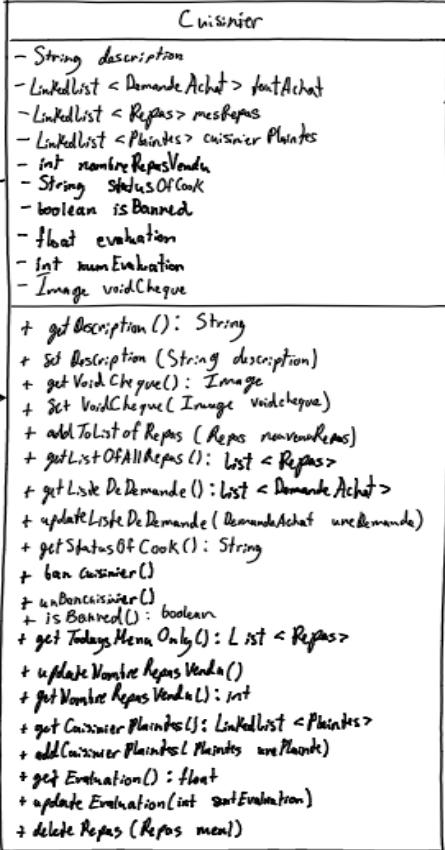 Cuisinier
- String description
- LinkedList < DemandeAchat > feutAchat
- LinkedList < Repas > mesRepas
- LinkedList < Plaintes > cuisinier Plaintes
- int nombreRepasVendu
- String statusOfCook
- boolean isBanned
- float evaluation
- int numEvaluation
- Image voidCheque
+ getDescription(): String
+ setDescription (String description)
+ getVoidCheque(): Image
+ setVoidCheque( Image voidcheque)
+ addToListofRepas ( Repas)
+ getListOfAllRepas(): List < Repas>
+ getListeDeDemande(): List < DemandeAchat>
+ updateListeDeDemande( DemandeAchat uneDemande)
+ getStatusOfCook(): String
+ ban Cuisinier()
+ unBanCuisinier()
+ isBanned(): boolean
+ get Todays Menu Only(): List < Repas>
+ updateNombreRepasVendu()
+ getNombreRepasVendu(): int
+ get CuisinierPlaintes(): LinkedList <Plaintes>
+ addCuisinierPlaintes( Plaintes unePlainte)
+ get Evaluation() : float
+ update Evaluation(int)
+ delete Repas (Repas menu)